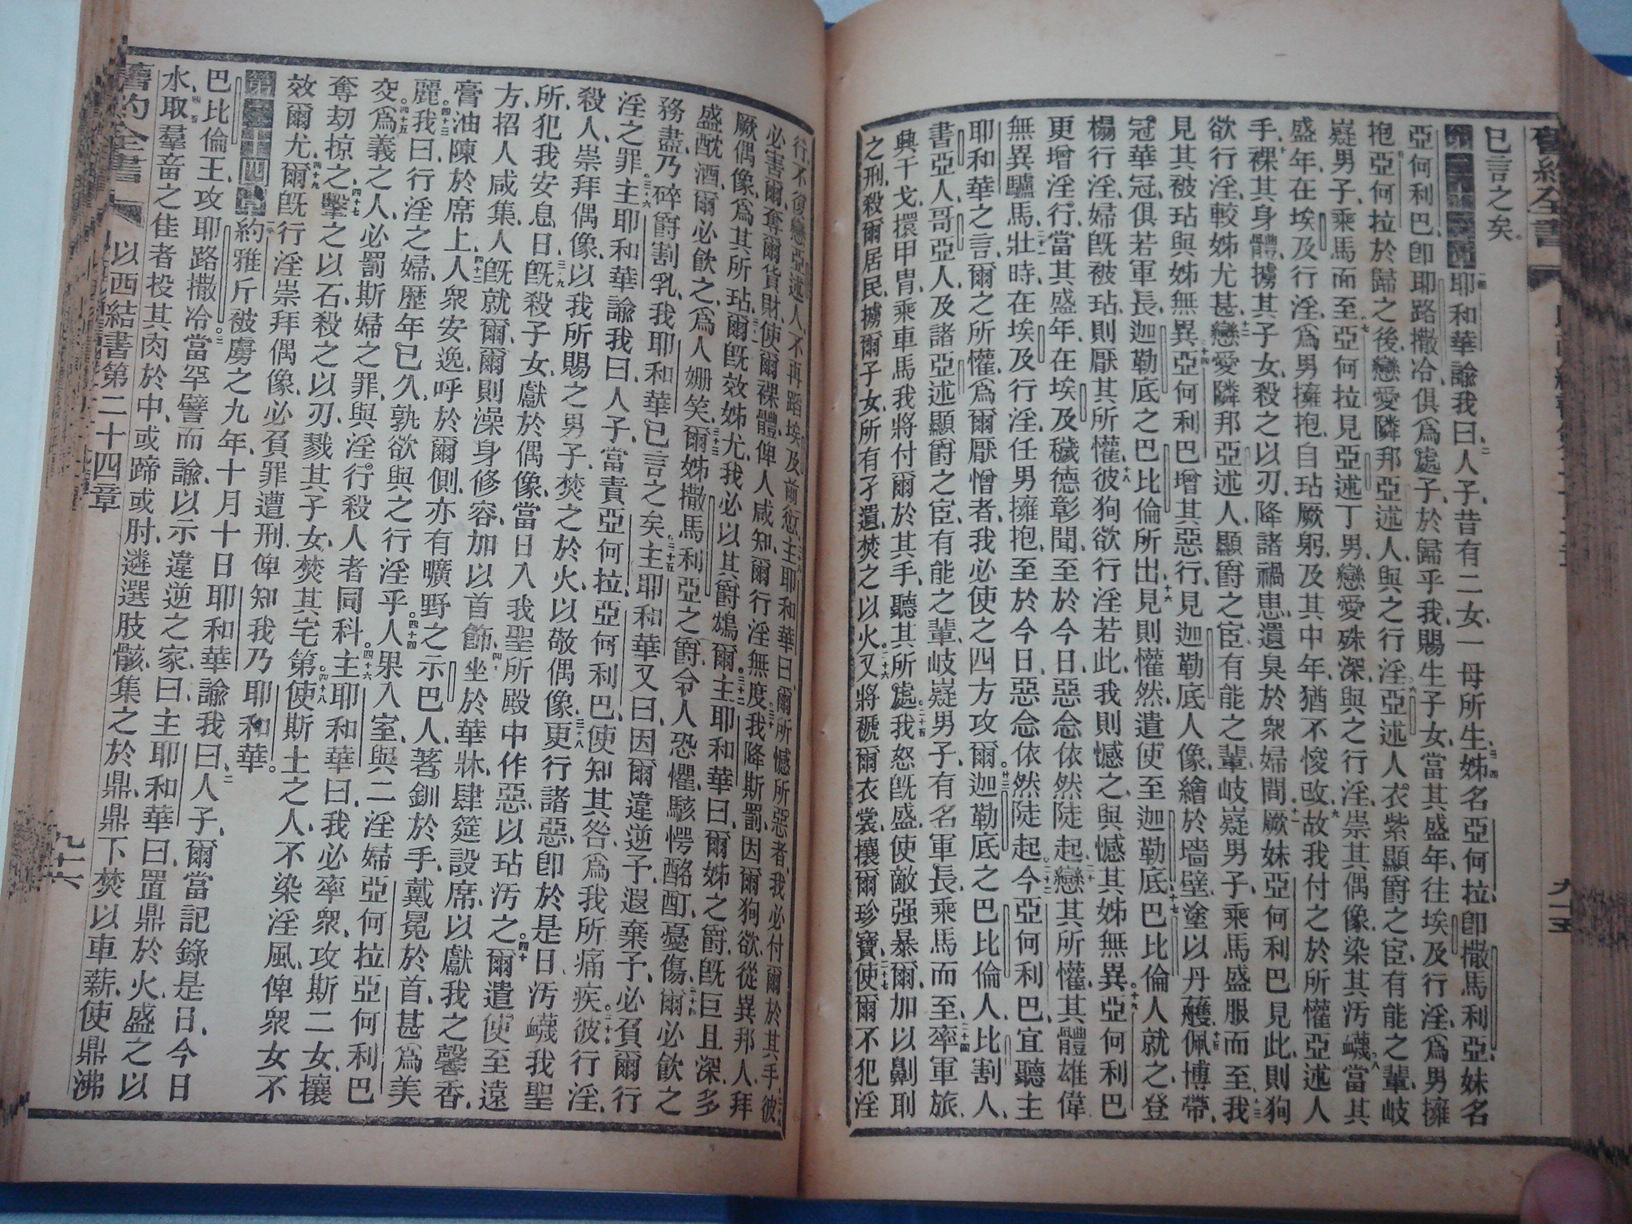 舊約全書
九十五
已言之矣
耶和華諭我曰人子昔有二女一母所生姊名亞何拉卽撒馬利亞妹名
亞何利巴卽耶路撒冷俱爲處子於歸乎我賜生子女當其盛年往埃及行淫爲男擁
抱亞何拉於歸之後戀愛隣邦亞述人與之行淫亞述人衣紫顯爵之臣有能之輩岐
嶷男子乘馬而至亞何拉見亞述丁男戀愛殊深與之行淫崇其偶像染其汚衊當其
盛年在埃及行淫爲男擁抱自玷厥躬及其中年猶不悛改故我付之於所懽亞述人
手裸其身體擄其子女殺之以刃降諸禍患遺臭於衆婦間厥妹亞何利巴見此則狥
欲行淫較姊尤甚戀愛隣邦亞述人顯爵之臣有能之輩岐嶷男子乘馬盛服而至我
見其被玷與姊無異亞何利巴增其惡行見迦勒底人像繪於墻壁塗以丹雘佩博帶
冠華冠俱若軍長迦勒底之巴比倫所出見則懽然遣使至迦勒底巴比倫人就之登
榻行淫婦旣被玷則厭其所懽彼狥欲行淫若此我則憾之與憾其姊無異亞何利巴
更增淫行當其盛年在埃及穢德彰聞至於今日惡念依然陡起戀其所懽其體雄偉
無異驢馬壯時在埃及行淫任男擁抱至於今日惡念依然陡起今亞何利巴宜聽主
耶和華之言爾之所懽爲爾厭憎者我必使之四方攻爾迦勒底之巴比倫人比割人
書亞人哥亞人及諸亞述顯爵之臣有能之輩岐嶷男子有名軍長乘馬而至率軍旅
興干戈擐甲冑乘車馬我將付爾於其手聽其所處我怒旣盛使敵强暴爾加以劓刵
之刑殺爾居民擄爾子女所有孑遺焚之以火又將褫爾衣裳攘爾珍寶使爾不犯淫
行不復戀亞述人不再蹈埃及前愆主耶和華曰爾所憾所惡者我必付爾於其手彼
必害爾奪爾貨財使爾裸體俾人咸知爾行淫無度我降斯罰因爾狥欲從異邦人拜
厥偶像爲其所玷爾旣效姊尤我必以其爵鴆爾主耶和華曰爾姊之爵旣巨且深多
盛酖酒爾必飮之爲人姍笑爾姊撒馬利亞之爵令人恐懼駭愕酩酊憂傷爾必飮之
務盡乃碎爵割乳我耶和華已言之矣主耶和華又曰因爾違逆予遐棄予必負爾行
淫之罪主耶和華諭我曰人子當責亞何拉亞何利巴使知其咎爲我所痛疾彼行淫
殺人崇拜偶像以我所賜之男子焚之於火以敬偶像更行諸惡卽於是日汚衊我聖
所犯我安息日旣殺子女獻於偶像當日入我聖所殿中作惡以玷汚之爾遣使至遠
方招人咸集人旣就爾爾則澡身修容加以首飾坐於華牀肆筵設席以獻我之馨香
膏油陳於席上人衆安逸呼於爾側亦有曠野之示巴人著釧於手戴冕於首甚爲美
麗我曰行淫之婦歷年已久孰欲與之行淫乎人果入室與二淫婦亞何拉亞何利巴
交爲義之人必罰斯婦之罪與淫行殺人者同科主耶和華曰我必率衆攻斯二女攘
奪劫掠之擊之以石殺之以刃戮其子女焚其宅第使斯土之人不染淫風俾衆女不
效爾尤爾旣行淫崇拜偶像必負罪遭刑俾知我乃耶和華
第二十四章約雅斤被虜之九年十月十日耶和華諭我曰人子爾當記錄是日今日
巴比倫王攻耶路撒冷當罕譬而諭以示違逆之家曰主耶和華曰置鼎於火盛之以
水取羣畜之佳者投其肉於中或蹄或肘遴選肢骸集之於鼎鼎下焚以車薪使鼎沸
舊約全書
以西結書第二十四章
九十六